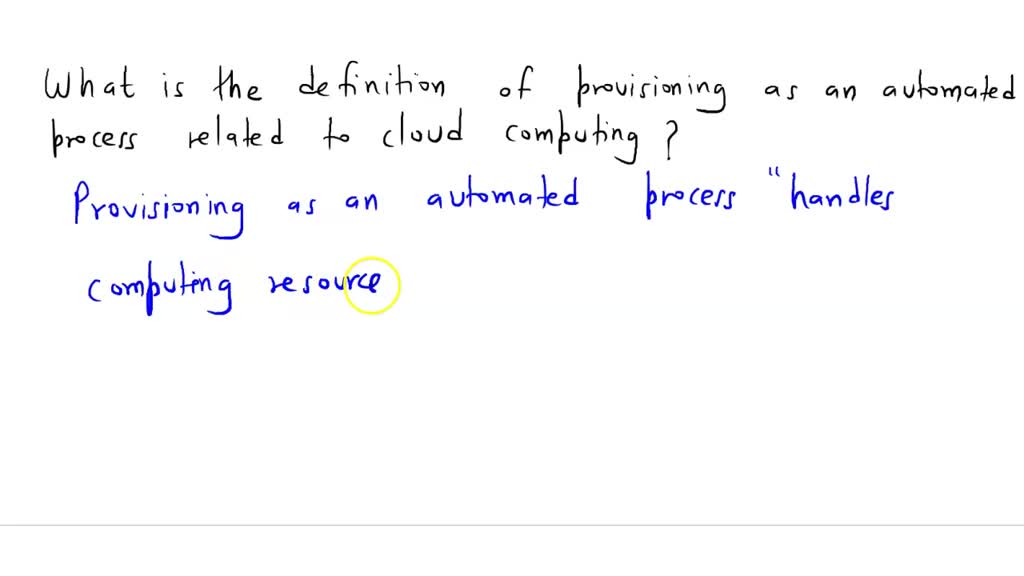 What is the definition of provisioning as an automated
process related to cloud computing?
Provisioning as an automated process "handles
computing resource